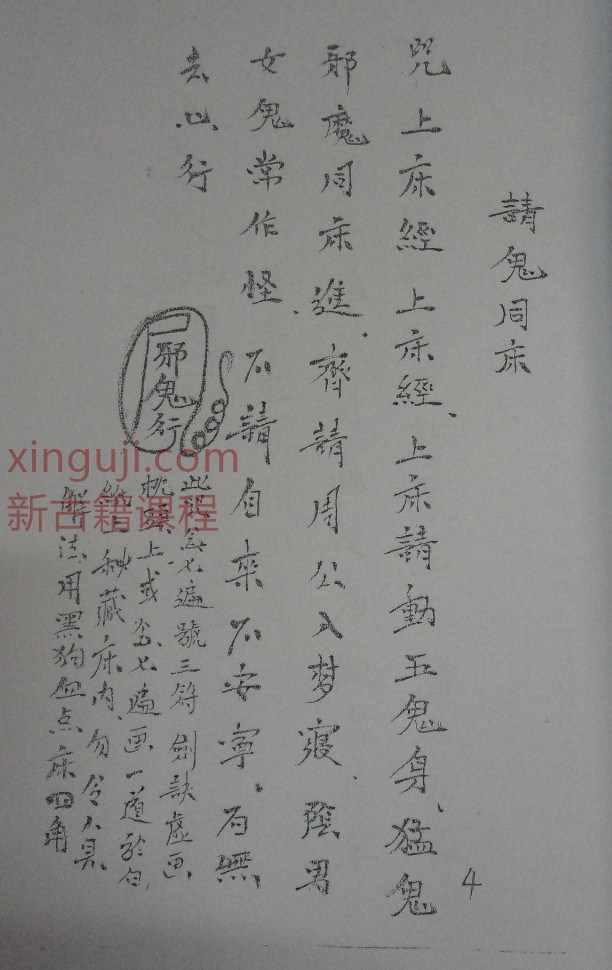 請鬼同床
咒上床經上床經、上床請動五鬼身、猛鬼
邪魔同床進、齊請周公入梦寢、陰男
女鬼常作怪、不請自來不安寧。有無
去心行
邪鬼行
此念七遍號三符劍訣虛画
枕頭上或念七遍画一道於白
紙上秘藏床内、勿令人見
解法用黑狗血点床四角
4
xinguji.com
新古籍课程